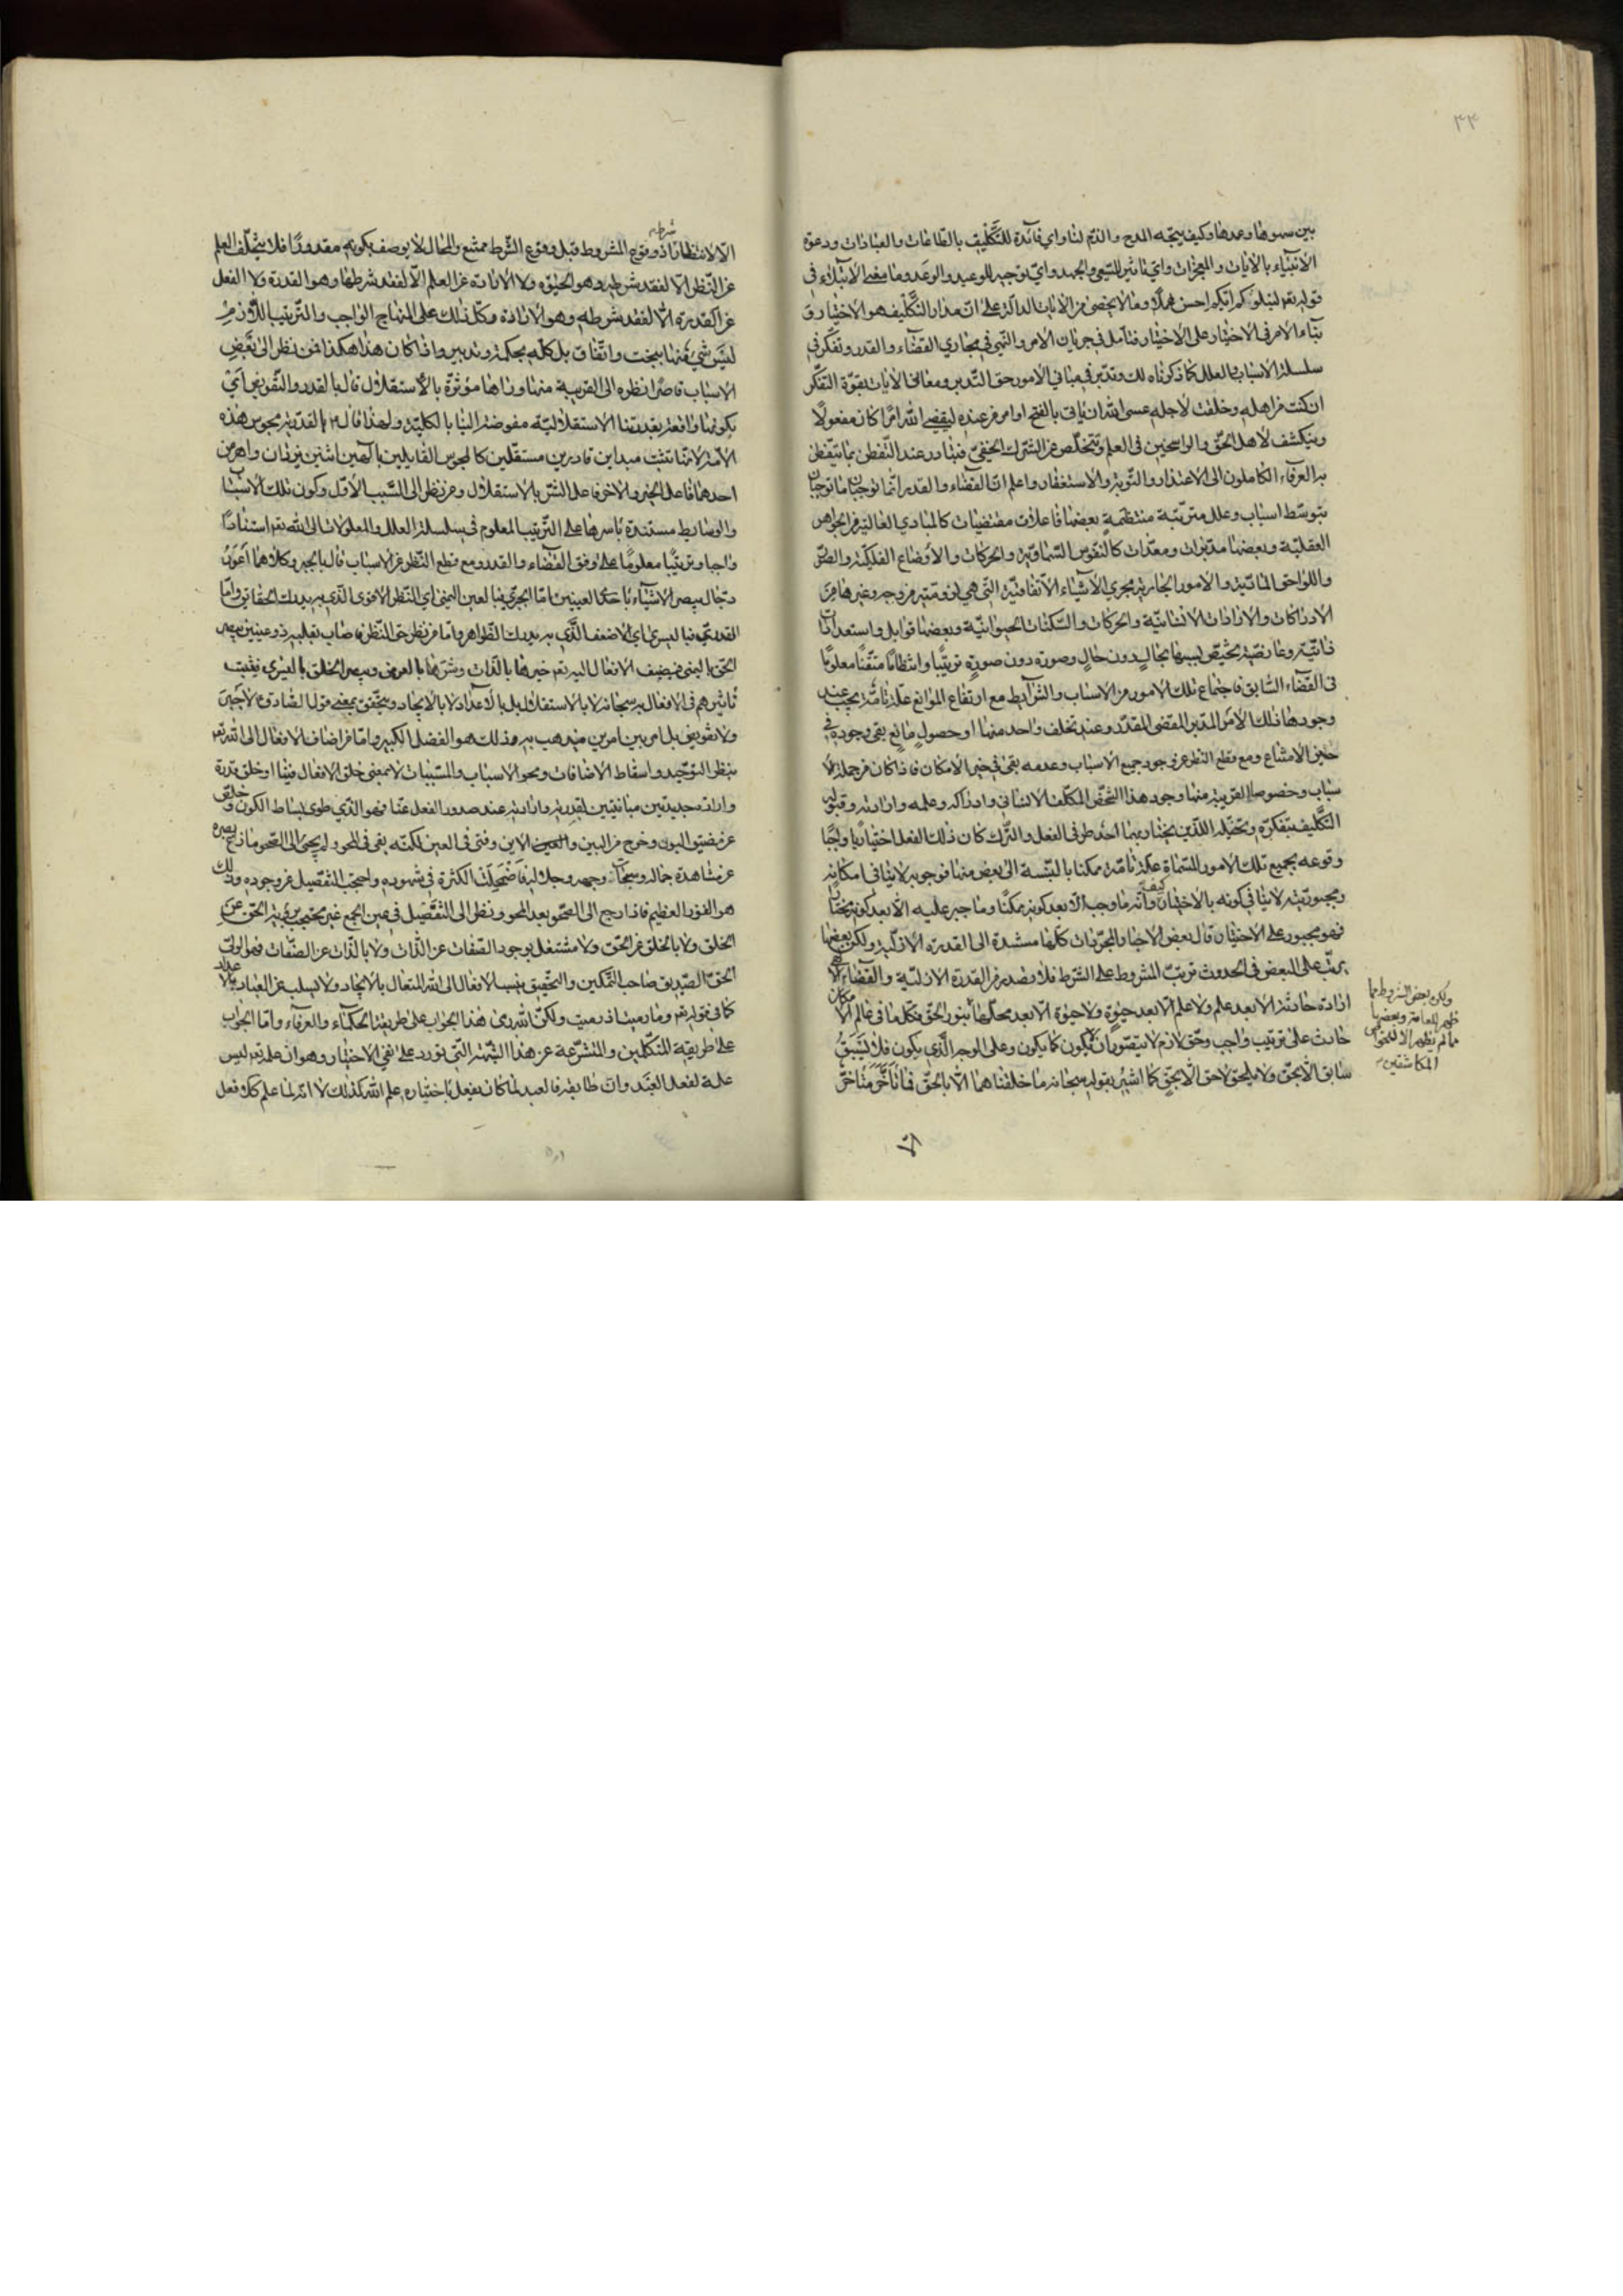 ٣٣
بين سهوها وعمدها وكيف يتجه المدح والذم لنا واي فائدة للتكليف بالطاعات والعبادات ودعوة
الانبياء بالايات والمعجزات واي تاثير للسعي والجهد واي توجيه للوعيد والوعد وما معنى الابتلاء في
قوله تعم ليبلوكم ايكم احسن عملا وما لا يحصى من الايات الدالة على ان مدار التكليف هو الاختيار و
بناء الامر في الاختبار على الاختيار فتأمل في جريان الامر والنهي في مجاري القضاء والقدر وتفكر في
سلسلة الاسباب والعلل كما ذكرناه لك وتدبر في مباني الامور حق التدبر ومعاني الايات بقوة التفكر
ان كنت من اهله وخلقت لاجله عسى الله ان ياتي بالفتح او امر من عنده ليقضي الله امرا كان مفعولا
وينكشف لاهل الحق والراسخين في العلم وتتخلص عن الشرك الخفي فتبادر عند التفطن بما يتفطن
به العرفاء الكاملون الى الاعتذار والتوبة والاستغفار واعلم ان القضاء والقدر انما يوجبان ما يوجبان
بتوسط اسباب وعلل مترتبة منتظمة بعضها فاعلات مقتضيات كالمبادي العالية من الجواهر
العقلية وبعضها مدبرات ومعدات كالنفوس السماوية والحركات والاوضاع الفلكية والصور
واللواحق المادية والامور الجارية مجري الاشياء الاتفاقية التي هي لزومية من وجه وغيرها من
الادراكات والارادات الانسانية والحركات والسكنات الحيوانية وبعضها قوابل واستعدادات
ذاتية وعارضية تختص بسببها بحال دون حال وصورة دون صورة ترتيبا وانتظاما متقنا معلوما
في القضاء السابق فاجتماع تلك الامور من الاسباب والشرايط مع ارتفاع الموانع علة تامة يجب عند
وجودها ذلك الامر المدبر المقضي المقدر وعند تخلف واحد منها او حصول مانع بقي وجوده في
حيز الامتناع ومع قطع النظر عن وجود جميع الاسباب وعدمه بقي في حيز الامكان فاذا كان من جملة الا
سباب وخصوصا القريبة منها وجود هذا الشخص المكلف الانساني وادراكه وعلمه وارادته وقبوله
التكليف بتفكره وتخيله اللذين يختار بهما احد طرفي الفعل والترك كان ذلك الفعل اختياريا واجبا
وقوعه بجميع تلك الامور المسماة علة تامة ممكنا بالنسبة الى بعض منها فوجوبه لا ينافي امكانه
ومجبوريته لا ينافي كونه بالاختيار كيف وانه ما وجب الا بعد كونه ممكنا وما جبر عليه الا بعد كونه مختارا
فهو مجبور على الاختيار قال بعض الاحباء المجردات كلها مستندة الى القدرة الازلية ولكن بعضها
يرتب على البعض في الحدوث ترتب المشروط على الشرط فلا يصدر من القدرة الازلية والقضاء الالهي
ارادة حادثة الا بعد علم ولا علم الا بعد حيوة ولا حيوة الا بعد محلها بنور الحق فكلما في عالم الامكان
حادث على ترتيب واجب وحق لازم لا يتصور ان يكون كما يكون وعلى الوجه الذي يكون فلا يسبق
سابق الا بحق ولا يلحق لاحق الا بحق كما اشير بقوله سبحانه ما خلقناهما الا بالحق فما تأخر متأخر
الا
ولكن بعض الشروط مما
ظهر للعامة وبعضها
مما لم يظهر الا للخواص
المكاشفين
الا لانتظار شرطه اذ وقوع المشروط قبل وقوع الشرط ممتنع والمحال لا يوصف بكونه مقدورا فلا يتخلف العلم
عن النظر الا لفقد شرطه وهو الحيوة ولا الارادة عن العلم الا لفقد شرطها وهو القدرة ولا الفعل
عن القدرة الا لفقد شرطه وهو الارادة وكل ذلك على المنهاج الواجب والترتيب اللازم
ليس شيء منها ببخت واتفاق بل كله بحكمة وتدبير واذا كان هذا هكذا فمن نظر الى بعض
الاسباب قاصرا نظره الى القريبة منها وراها مؤثرة بالاستقلال قال بالقدر والتفويض اي
بكونها واقعة بقدرتنا الاستقلالية مفوضة الينا بالكلية ولهذا قال القدرية مجوس هذه
الامة لانها تثبت مبداين قادرين مستقلين كالمجوس القايلين بالهين اثنين يزدان واهرمن
احدهما فاعل الخير والاخر فاعل الشر بالاستقلال ومن نظر الى السبب الاول وكون تلك الاسباب
والوسايط مستندة باسرها على الترتيب المعلوم في سلسلة العلل والمعلولات الى الله تعم استنادا
واجبا وترتيبا معلوما على وفق القضاء والقدر ومع قطع النظر عن الاسباب قال بالجبر وكلاهما اعور
دجال يبصر الاشياء باحدى العينين اما الجبري فبالعين اليمنى اي النظر الاقوى الذي به يدرك الحقائق واما
القدري فباليسرى اي الاضعف الذي به يدرك الظواهر واما من نظر حق النظر فاصاب فقلبه ذو عينين يبصر
الحق باليمنى فيضيف الافعال اليه تعم خيرها بالذات وشرها بالعرض ويبصر الخلق باليسرى فيثبت
تاثيرهم في الافعال به سبحانه لا بالاستقلال بل بالاعداد لا بالايجاد ويتحقق بمعنى قول الصادق ع لا جبر
ولا تفويض بل امر بين امرين فيذهب به وذلك هو الفضل الكبير واما من اضاف الافعال الى الله تعم
بنظر التوحيد واسقاط الاضافات ومحو الاسباب والمسببات لا بمعنى خلق الافعال فينا او خلق قدرة
وارادة جديدتين مباينتين لقدرته وارادته عند صدور الفعل عنا فهو الذي طوى بساط الكون وخلص
عن مضيق البون وخرج من البين والاين وفنى في العين لكنه بقي في المحو ولم يجئ الى الصحو مازاغ بصره
عن مشاهدة جماله وسبحات وجهه وجلاله فاضمحلت الكثرة في شهوده واحتجب التفصيل عن وجوده وذلك
هو الفوز العظيم فاذا رجع الى الصحو بعد المحو ونظر الى التفصيل في عين الجمع غير محتجب برؤية الحق عن
الخلق ولا بالخلق عن الحق ولا مشتغل بوجود الصفات عن الذات ولا بالذات عن الصفات فهو الولي
الحق الصديق صاحب التمكين والتحقيق ينسب الافعال الى الله المتعال بالايجاد ولا يسلب عن العباد بالاعداد
كما في قوله تعم وما رميت اذ رميت ولكن الله رمى هذا الجواب على طريقة الحكماء والعرفاء واما الجواب
على طريقة المتكلمين والمتشرعة عن هذا الشبهة التي تورد على نفي الاختيار وهو ان علمه تعم ليس
علة لفعل العبد وان طابقه فالعبد لما كان يفعل باختياره علم الله كذلك لا انه لما علم كذلك فعل